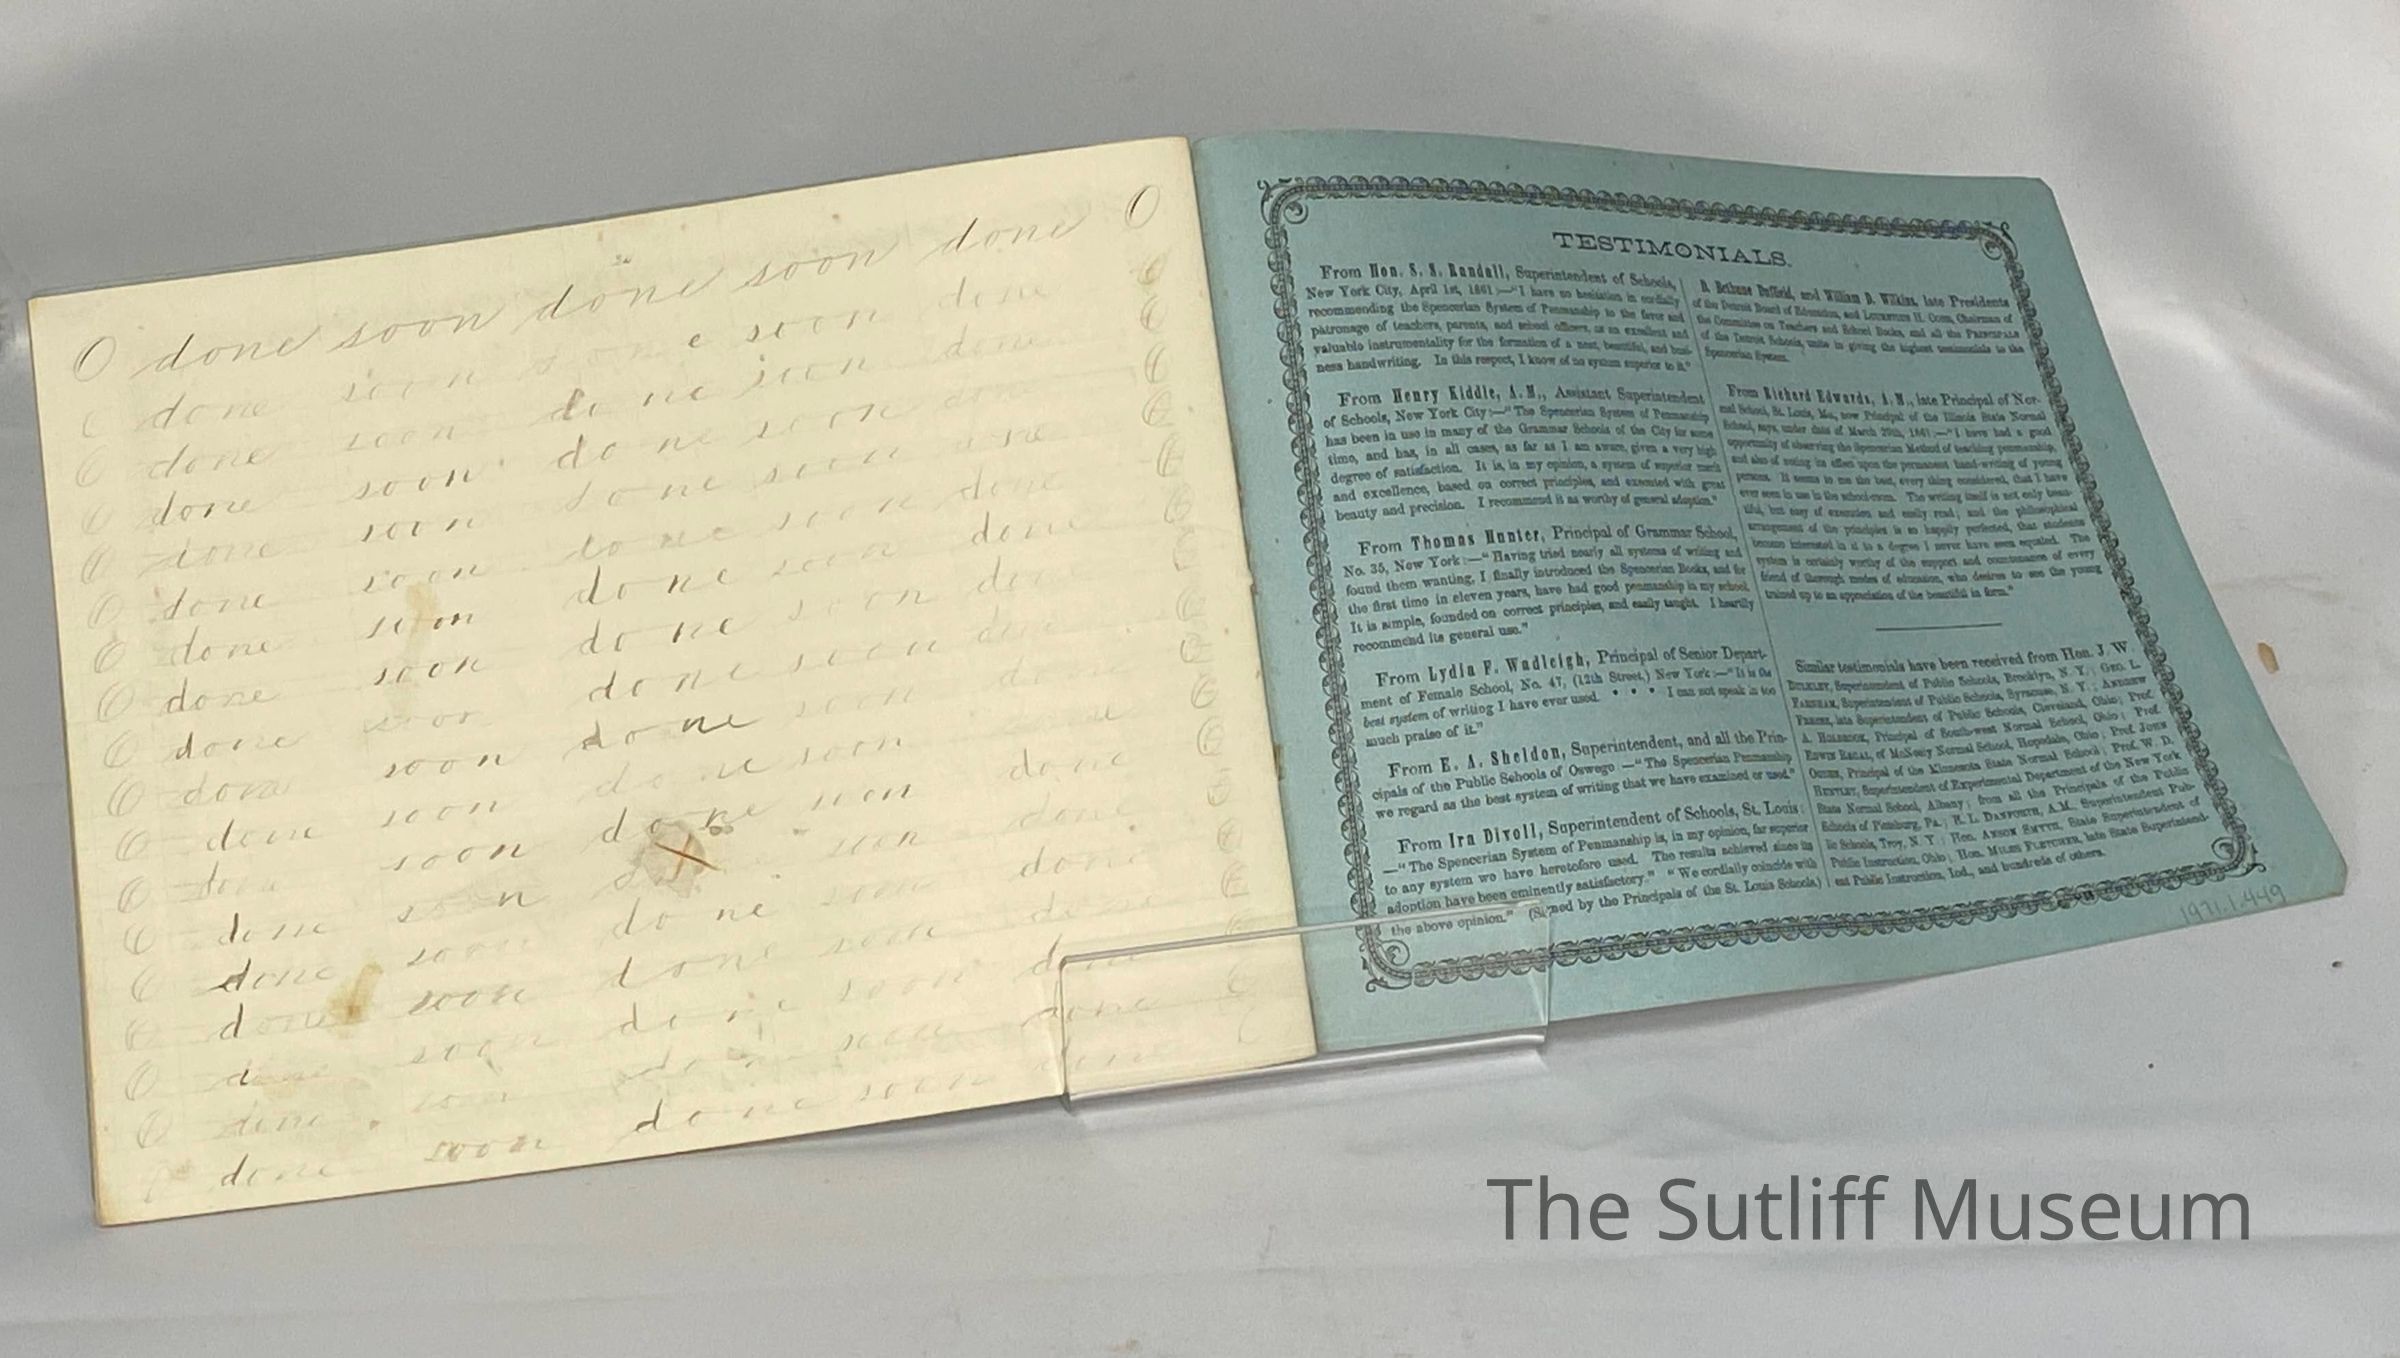 O done soon done soon done O
done soon soon done
O done soon done soon done O
O done soon done soon done O
O done soon done soon O
O done soon done soon done O
O done soon done soon done O
O done soon done soon done O
O done soon done soon done O
O done soon done soon done O
O done soon done soon done O
O done soon done soon done O
O done soon soon done O
O done soon done soon done O
O done soon done soon done
O done soon done soon done
O done soon done soon done
done soon done soon done
TESTIMONIALS.
From Hon. S. S. Randall, Superintendent of Schools,
New York City, April 1st, 1861:—"I have no hesitation in cordially
recommending the Spencerian System of Penmanship to the favor and
patronage of teachers, parents, and school officers, as an excellent and
valuable instrumentality for the formation of a neat, beautiful, and busi-
ness handwriting. In this respect, I know of no system superior to it."
From Henry Kiddle, A. M., Assistant Superintendent
of Schools, New York City:—"The Spencerian System of Penmanship
has been in use in many of the Grammar Schools of the City for some
time, and has, in all cases, as far as I am aware, given a very high
degree of satisfaction. It is, in my opinion, a system of superior merit
and excellence, based on correct principles, and executed with great
beauty and precision. I recommend it as worthy of general adoption."
From Thomas Hunter, Principal of Grammar School,
No. 35, New York:—"Having tried nearly all systems of writing and
found them wanting, I finally introduced the Spencerian Books, and for
the first time in eleven years, have had good penmanship in my school.
It is simple, founded on correct principles, and easily taught. I heartily
recommend its general use."
From Lydia F. Wadleigh, Principal of Senior Depart-
ment of Female School, No. 47, (12th Street,) New York:—"It is the
best system of writing I have ever used. * * * I can not speak in too
much praise of it."
From E. A. Sheldon, Superintendent, and all the Prin-
cipals of the Public Schools of Oswego:—"The Spencerian Penmanship
we regard as the best system of writing that we have examined or used."
From Ira Divoll, Superintendent of Schools, St. Louis:
—"The Spencerian System of Penmanship is, in my opinion, far superior
to any system we have heretofore used. The results achieved since its
adoption have been eminently satisfactory." "We cordially coincide with
the above opinion." (Signed by the Principals of the St. Louis Schools.)
D. Bethune Duffield, and William D. Wilkins, late Presidents
of the Detroit Board of Education, and Chairman of
the Committee on Teachers and School Books, and all the Principals
of the Detroit Schools, unite in giving the highest testimonials to the
Spencerian System.
From Richard Edwards, A. M., late Principal of Nor-
mal School, St. Louis, Mo., now Principal of the Illinois State Normal
School, says, under date of March 20th, 1861:—"I have had a good
opportunity of observing the Spencerian Method of teaching penmanship,
and also of noting its effect upon the permanent hand-writing of young
persons. It seems to me the best, every thing considered, that I have
ever seen in use in the school-room. The writing itself is not only beau-
tiful, but easy of execution and easily read; and the philosophical
arrangement of the principles is so happily perfected, that students
become interested in it to a degree I never have seen equaled. The
system is certainly worthy of the support and countenance of every
friend of thorough modes of education, who desires to see the young
trained up to an appreciation of the beautiful in form."
Similar testimonials have been received from Hon. J. W.
Bulkley, Superintendent of Public Schools, Brooklyn, N. Y.; Geo. L.
Farnham, Superintendent of Public Schools, Syracuse, N. Y.; Andrew
Freese, late Superintendent of Public Schools, Cleveland, Ohio; Prof.
A. Holbrook, Principal of South-west Normal School, Ohio; Prof.
Edwin Regal, of McNeely Normal School, Hopedale, Ohio; Prof. John
Ogden, Principal of the Minnesota State Normal School; Prof. W. D.
Huntley, Superintendent of Experimental Department of the New York
State Normal School, Albany; from all the Principals of the Public
Schools of Pittsburg, Pa.; E. L. Danforth, A.M., Superintendent Pub-
lic Schools, Troy, N. Y.; Hon. Anson Smyth, State Superintendent of
Public Instruction, Ohio; Hon. Miles Fletcher, late State Superintend-
ent Public Instruction, Ind., and hundreds of others.
1971.1.449
The Sutliff Museum